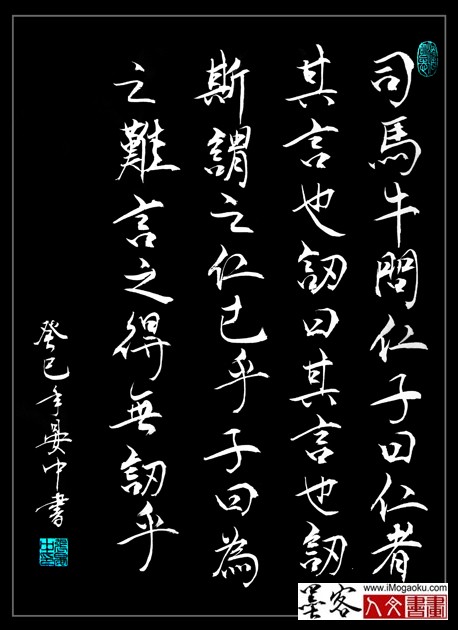 司馬牛問仁子曰仁者
其言也訒曰其言也訒
斯謂之仁已乎子曰為
之難言之得無訒乎
癸巳年晏中書
www.iMogaoku.com
墨客 人文書畫